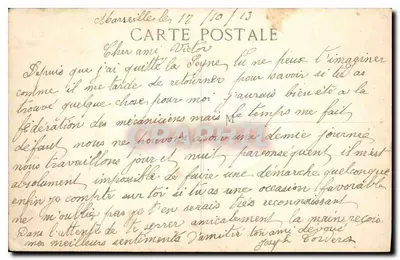 Marseille le 17/10/13
CARTE POSTALE
Cher ami Victor
Depuis que j'ai quitté la Seyne, tu ne peux t'imaginer
comme il me tarde de retourner pour savoir si tu as
trouvé quelque chose pour moi j'aurais bien été a la
fédération des mécaniciens mais le temps me fait
défaut nous ne une demie journée
nous travaillons jour et nuit parconséquent il m'est
absolument impossible de faire une démarche quelconque
enfin je compte sur toi si tu as une occasion favorable
ne m'oublie pas je t'en serais très reconnaissant
Dans l'attente de te serrer amicalement la main reçois
mes meilleurs sentiments d'amitié ton ami dévoué
Joseph